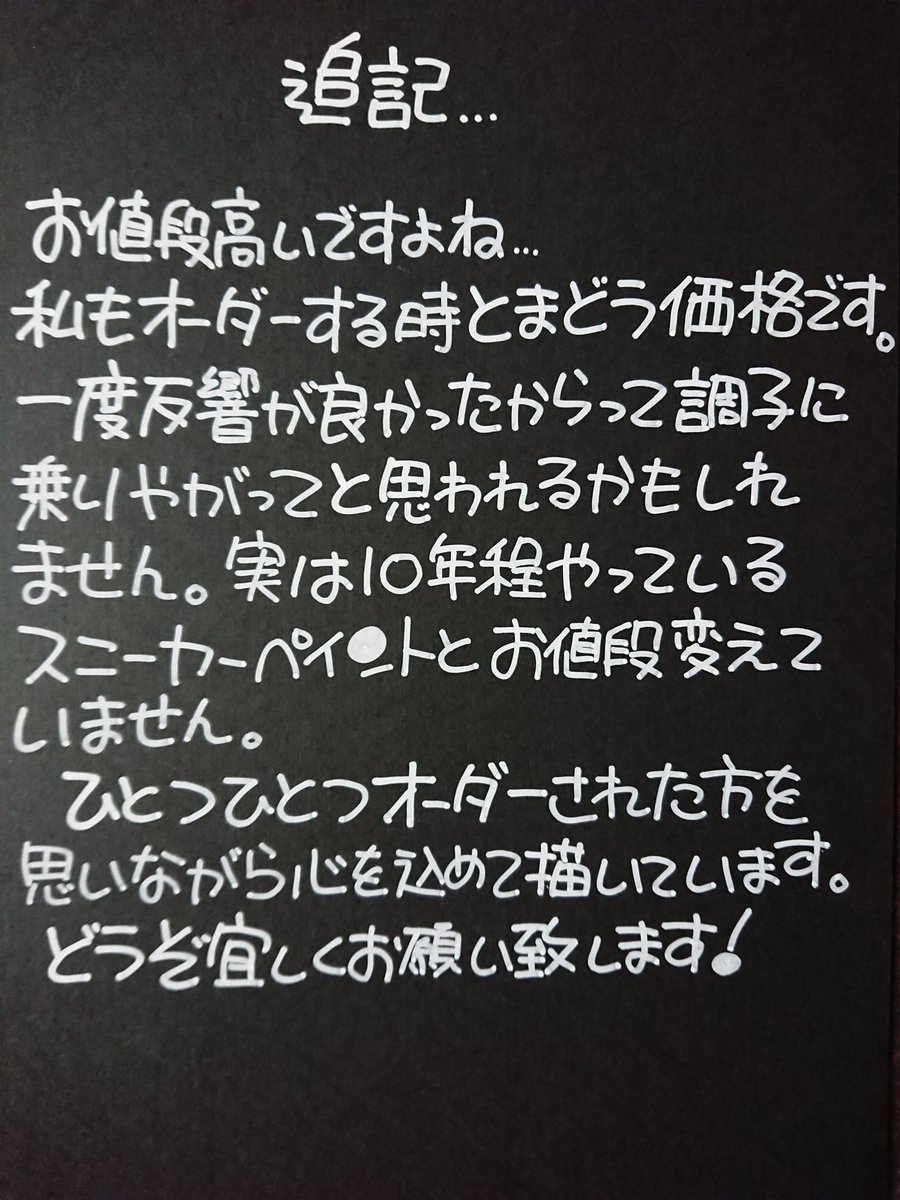 追記...
お値段高いですよね...
私もオーダーする時とまどう価格です。
一度反響が良かったからって調子に
乗りやがってと思われるかもしれ
ません。実は10年程やっている
スニーカーペイントとお値段変えて
いません。
ひとつひとつオーダーされた方を
思いながら心を込めて描いています。
どうぞ宜しくお願い致します!